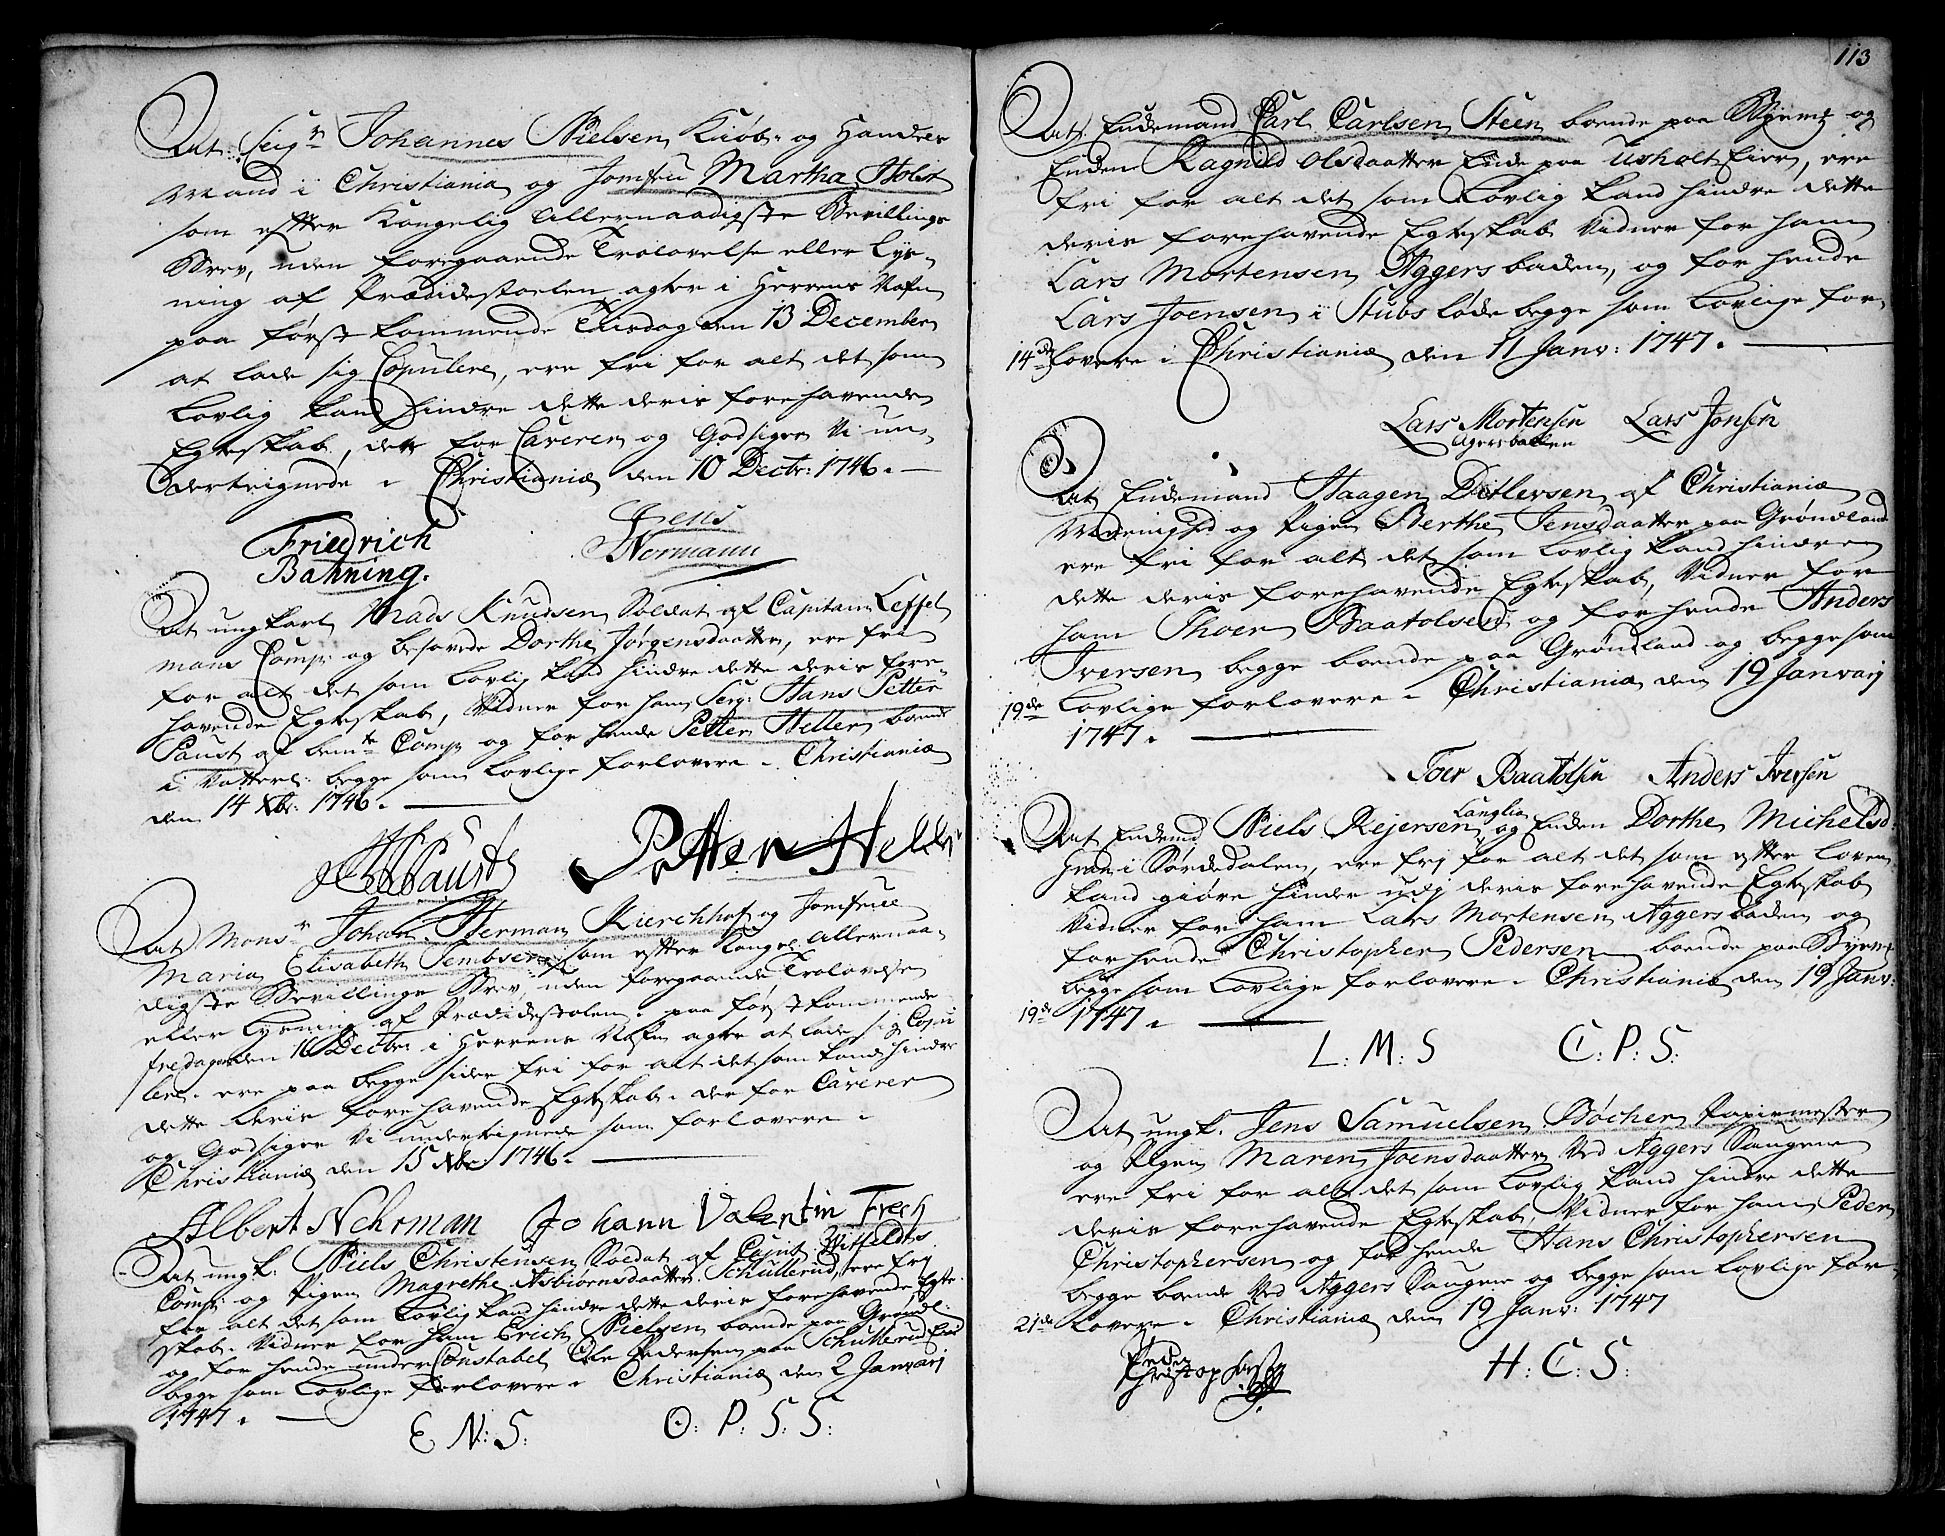 At Sigr Johannes Nielsen Kiøb- og Handels
Mand i Christiania og Jomfru Martha Holst
som efter Kongelig Allernaadigste Bevillings
Brev, uden foregaaende Trolovelse eller Lys-
ning af Prædickestoelen agter i Herrens Nafn
paa først kommende Tiirsdag den 13 December
at lade sig Copulere, ere fri for alt det som
Lovlig kand hindre dette deris forehavende
Egteskab, dette for Caverer og Godsiger Vi un-
dertegnede i Christiania den 10 Decbr: 1746.
Friedrich Bahning.
Jens Nermann
At ungkarl Mads Knudsen Soldat af Capitain Leffel
mans Comp: og besovede Dorthe Jørgensdaatter, ere fri
for alt det som Lovlig kand hindre dette deris fore-
havende Egteskab, Vidner for ham Serg: Hans Petter
Faust af bemte Comp: og for hende Petter Heller boende
i Vatterl: begge som Lovlige forlovere i Christiania
den 14 Xbr: 1746.
HPFaust
Petter Heller
At Monsr Johan Herman Kierchhof og Jomfrue
Maria Elisabeth Jembsen som efter Kongel: Allernaa-
digste Bevillings Brev, uden foregaaende Trolovelse
eller Lysning af Prædickestolen, paa først kommende
fredag den 16 Decbr: i Herrens Nafn agter at lade sig Copu
lere, ere paa begge sider fri for alt det som kand hindre
dette deris forehavende Egteskab, der for Caverer
og Godsiger Vi undertegnede som forlovere i
Christiania den 15 Xbr: 1746.
Albert Nehrman Johann Valentin Frech
At ungk: Niels Christensen Soldat af Capit: Witfeldts
Comp: og Pigen Magrethe Asbiørnsdaatter Schullerud, ere fri
for alt det som Lovlig kand hindre dette deris forehavende Egte-
skab. Vidner for ham Erich Nielsen boende paa Grøndl:
og for hende under Constabel Ole Pedersen paa Schullerud Eie
begge som Lovlige forlovere i Christiania den 2 Janvarj
1747.
E. N: S: O: P: S: S:
113
At Enckemand Carl Carlsen Steen boende paa Bijemz og
Encken Ragnild Olsdaatter Ende paa Usholt Eier, ere
fri for alt det som Lovlig kand hindre dette
deris forehavende Egteskab Vidner for ham
Lars Mortensen Aggersbacken, og for hende
Lars Joensen i Stubs løcke begge som Lovlige for-
14de lovere i Christiania den 11 Janv: 1747.
Lars Mortensen Lars Jonsen
Agersbacken
At Enckemand Haagen Ditlevsen af Christiania
Menighed og Pigen Berthe Jensdaatter paa Grøndland
ere fri for alt det som Lovlig kand hindre
dette deris forehavende Egteskab, Vidner for
ham Thoer Baatolsen og for hende Anders
Iversen begge boende paa Grøndland og begge som
19de Lovlige forlovere i Christiania den 19 Janvarij
1747.
Toer Baatolsen Anders Iversen
At Enckemd Niels Rejersen Langlia og Encken Dorthe Michelsd:
Gran i Sørckedalen, ere frj for alt det som efter Loven
kand giøre hinder udj deris forehavende Egteskab
Vidner for ham Lars Mortensen Aggersbacken og
for hende Christopher Pedersen boende paa Byemz
begge som Lovlige forlovere i Christiania den 19 Janv:
19de 1747.
L: M: S C: P: S:
At ungk. Jens Samuelsen Bøcher Papiirmester
og Pigen Maren Joensdaatter Ved Aggers Saugene
ere fri for alt det som Lovlig kand hindre dette
deris forehavende Egteskab, Vidner for ham Peder
Christophersen og for hende Hans Christophersen
begge boende Ved Aggers Saugene og begge som Lovlige for-
21de lovere i Christiania den 19 Janv: 1747
Peder
Christophersen
H: C: S: